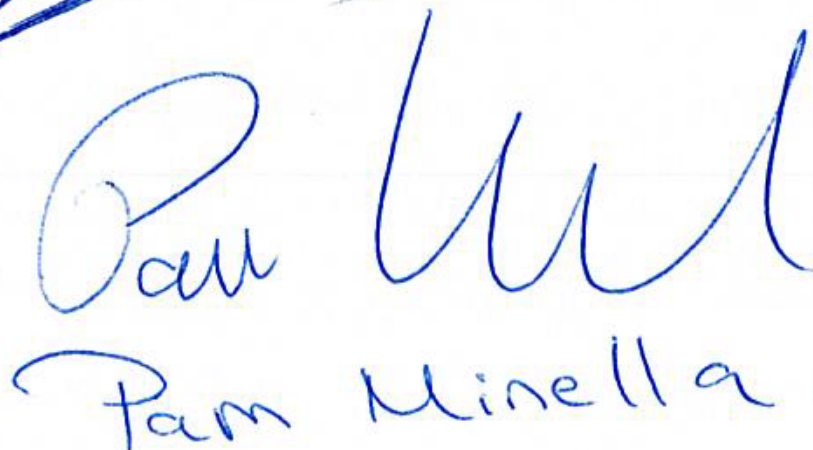 Pam
Pam Minella